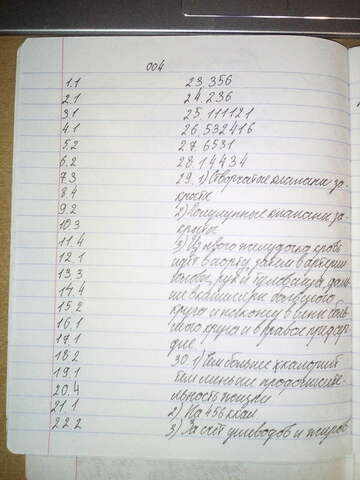 004
1.1
2.1
3.1
4.1
5.2
6.2
7.3
8.4
9.2
10.3
11.4
12.1
13.3
14.4
15.2
16.1
17.1
18.2
19.1
20.4
21.1
22.2
23.356
24.236
25.111121
26.532416
27.6531
28.14434
29.1) Створчатые клапаны за-
крыты
2) Полулунные клапаны за-
крыты
3) Из левого желудочка кровь
идёт в аорту, затем в артерии
головы, рук и туловища, даль-
ше в капилляры большого
круга и наконец в вены боль-
шого круга и в правое предсер-
дие.
30.1) Чем больше ккалорий
тем меньше продолжите-
льность жизни
2) На 456 ккал
3) За счёт углеводов и жиров